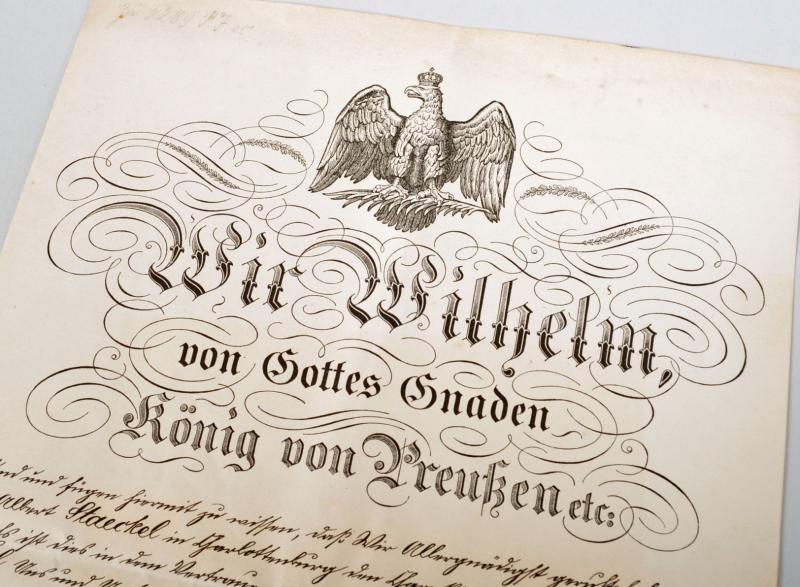 Wir Wilhelm,
von Gottes Gnaden
König von Preußen etc:
und fügen hiermit zu wissen, daß Wir Allergnädigst geruht
Albert Staeckel in Charlottenburg den
ist dies in dem
Uns und